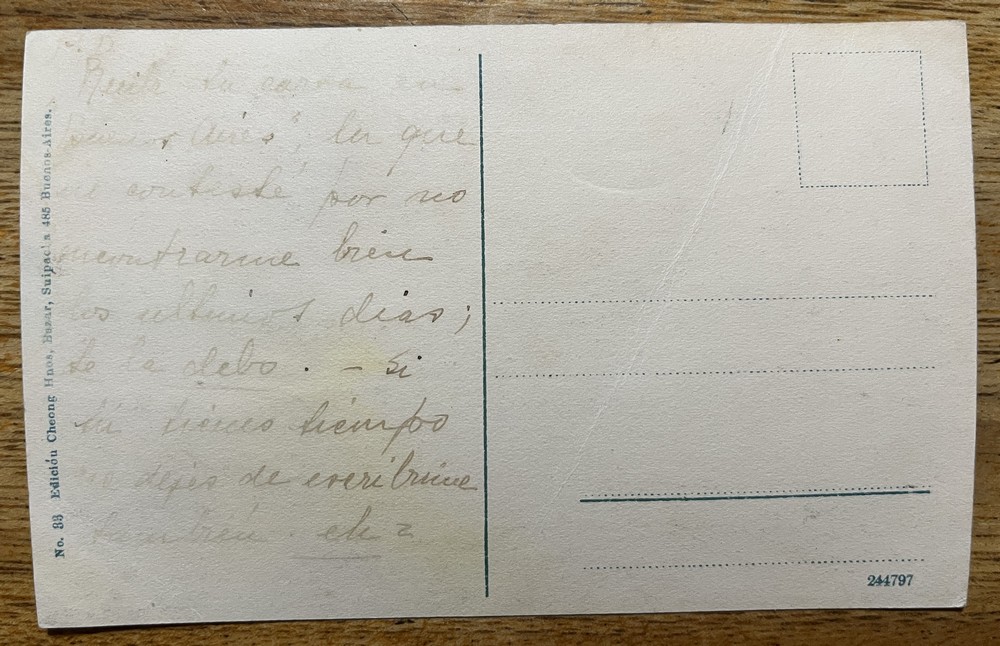 Recibí tu carta en
buenos Aires", la que
no contesté por no
encontrarme bien
los ultimos dias;
te la debo. - Si
tú tienes tiempo
no dejes de escribirme
tambien.
No. 33 Edición Cheong Hnos, Bazar, Suipacha 485 Buenos-Aires.
244797